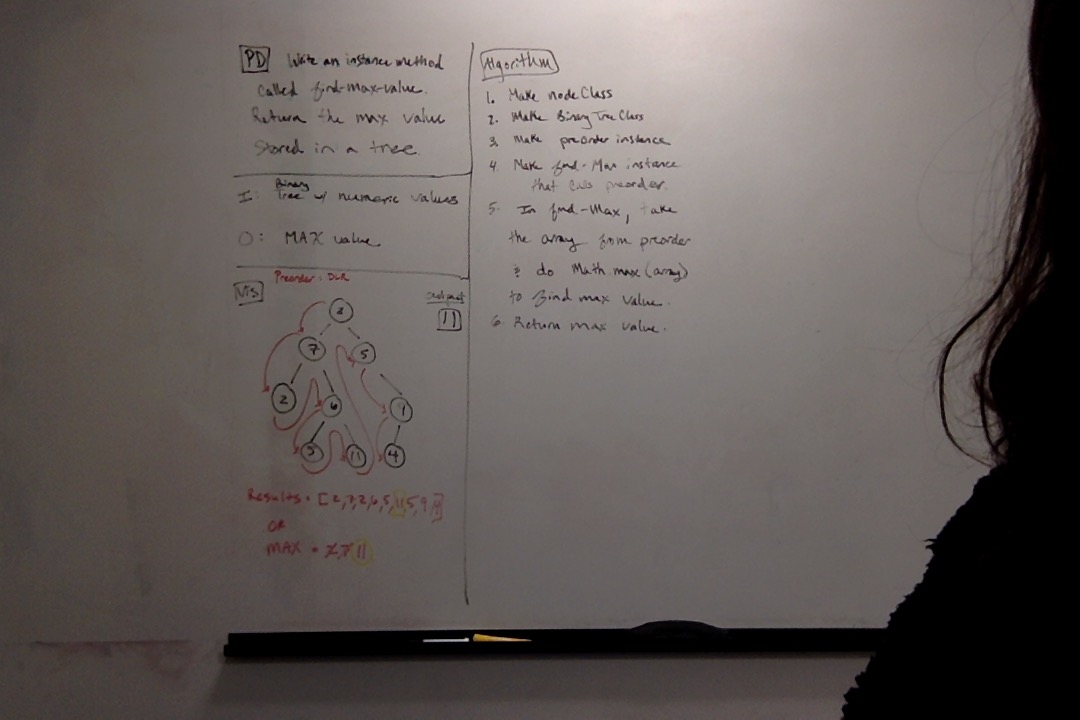 PD Write an instance method
called find-max-value.
Return the max value
Stored in a tree.
I: Binary Tree w/ numeric values
O: MAX value
Vis
Preorder: DLR
Output
11
2
7
5
2
6
9
5
11
4
Results = [2,7,2,6,5,11,5,9,4]
OR
MAX = 2,7 11
Algorithm
1. Make node Class
2. Make Binary Tree Class
3. Make preorder instance
4. Make find-Max instance
that calls preorder.
5. In find-Max, take
the array from preorder
& do Math.max(array)
to find max value.
6. Return max value.